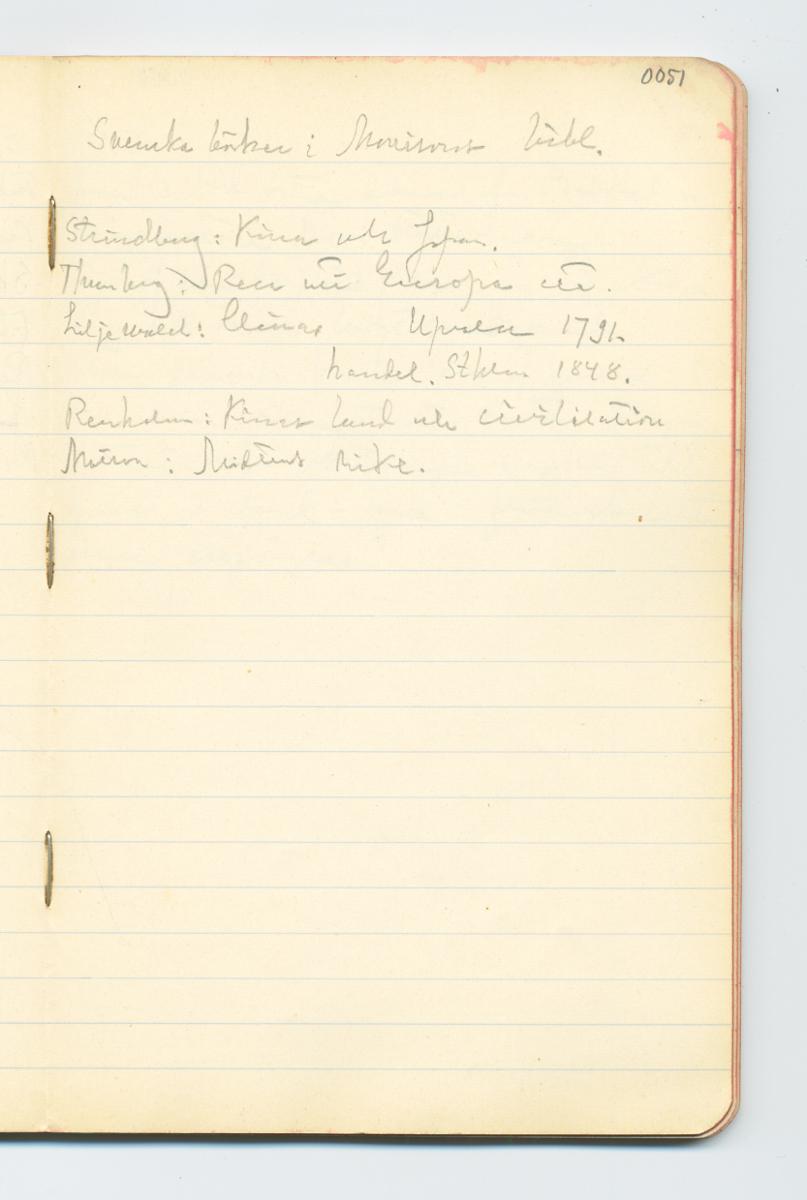 0051
Svenska böcker i Morrisons bibl.
Strindberg: Kina och Japan.
Thunberg: Resa uti Europa etc.
Liljewalch: Chinas Upsala 1791.
handel. Sthlm 1848.
Renholm: Kinas land och civilisation
Matson: Midtens rike.